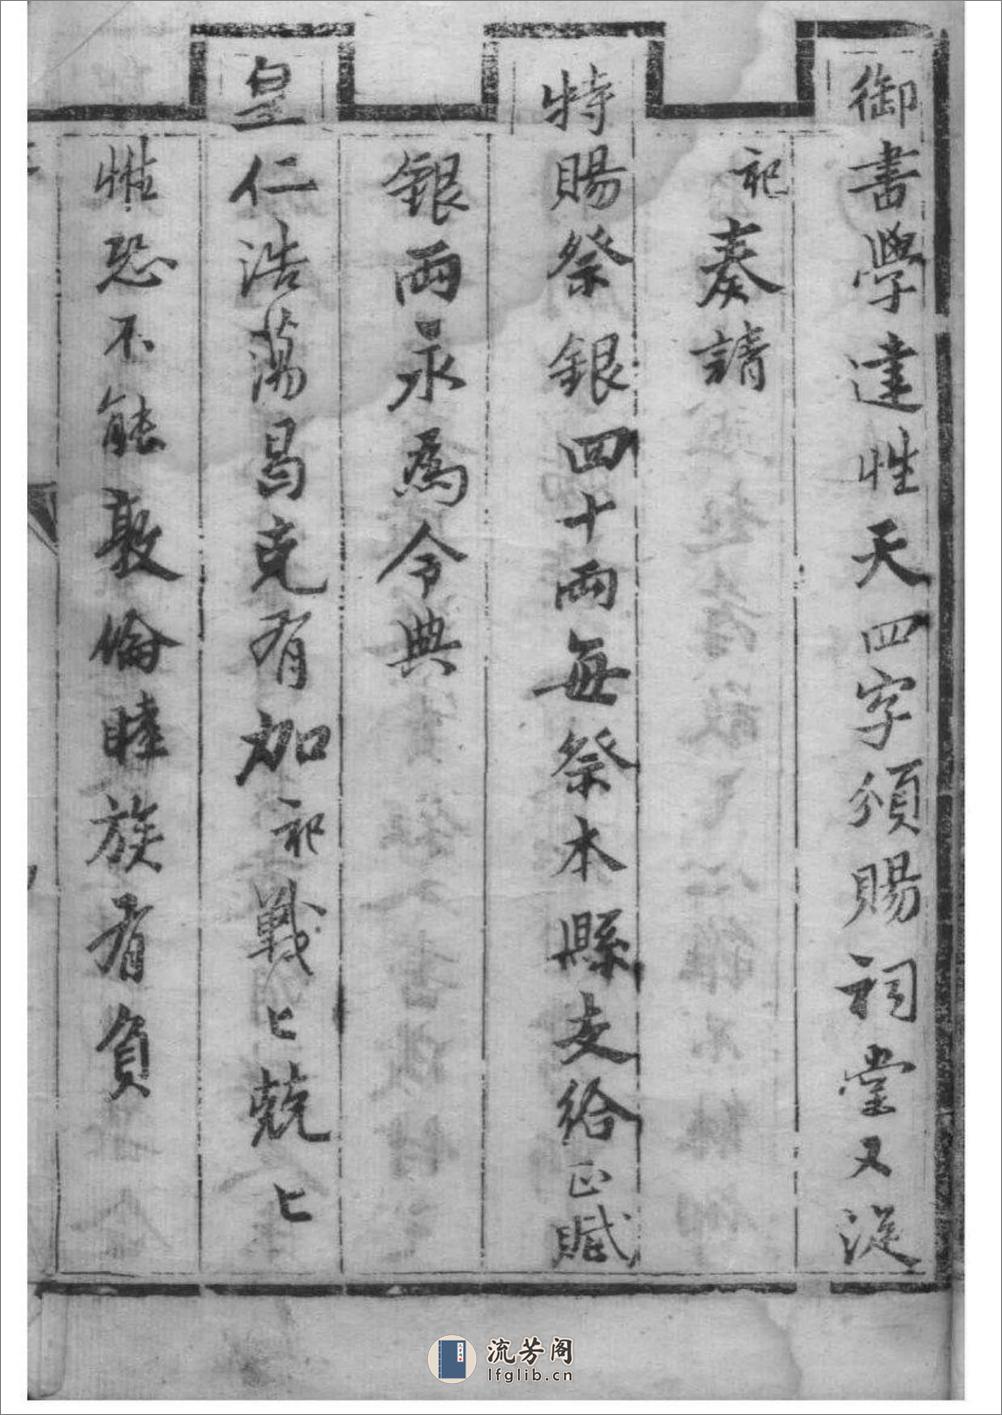 御書學達性天四字頒賜祠堂又從
祀奏請
特賜祭銀四十兩每祭本縣支給正賦
銀兩永為令典
皇仁浩蕩曷克有加祀戰匕兢匕
惟恐不能敦倫睦族有負
流芳阁
lfglib.cn